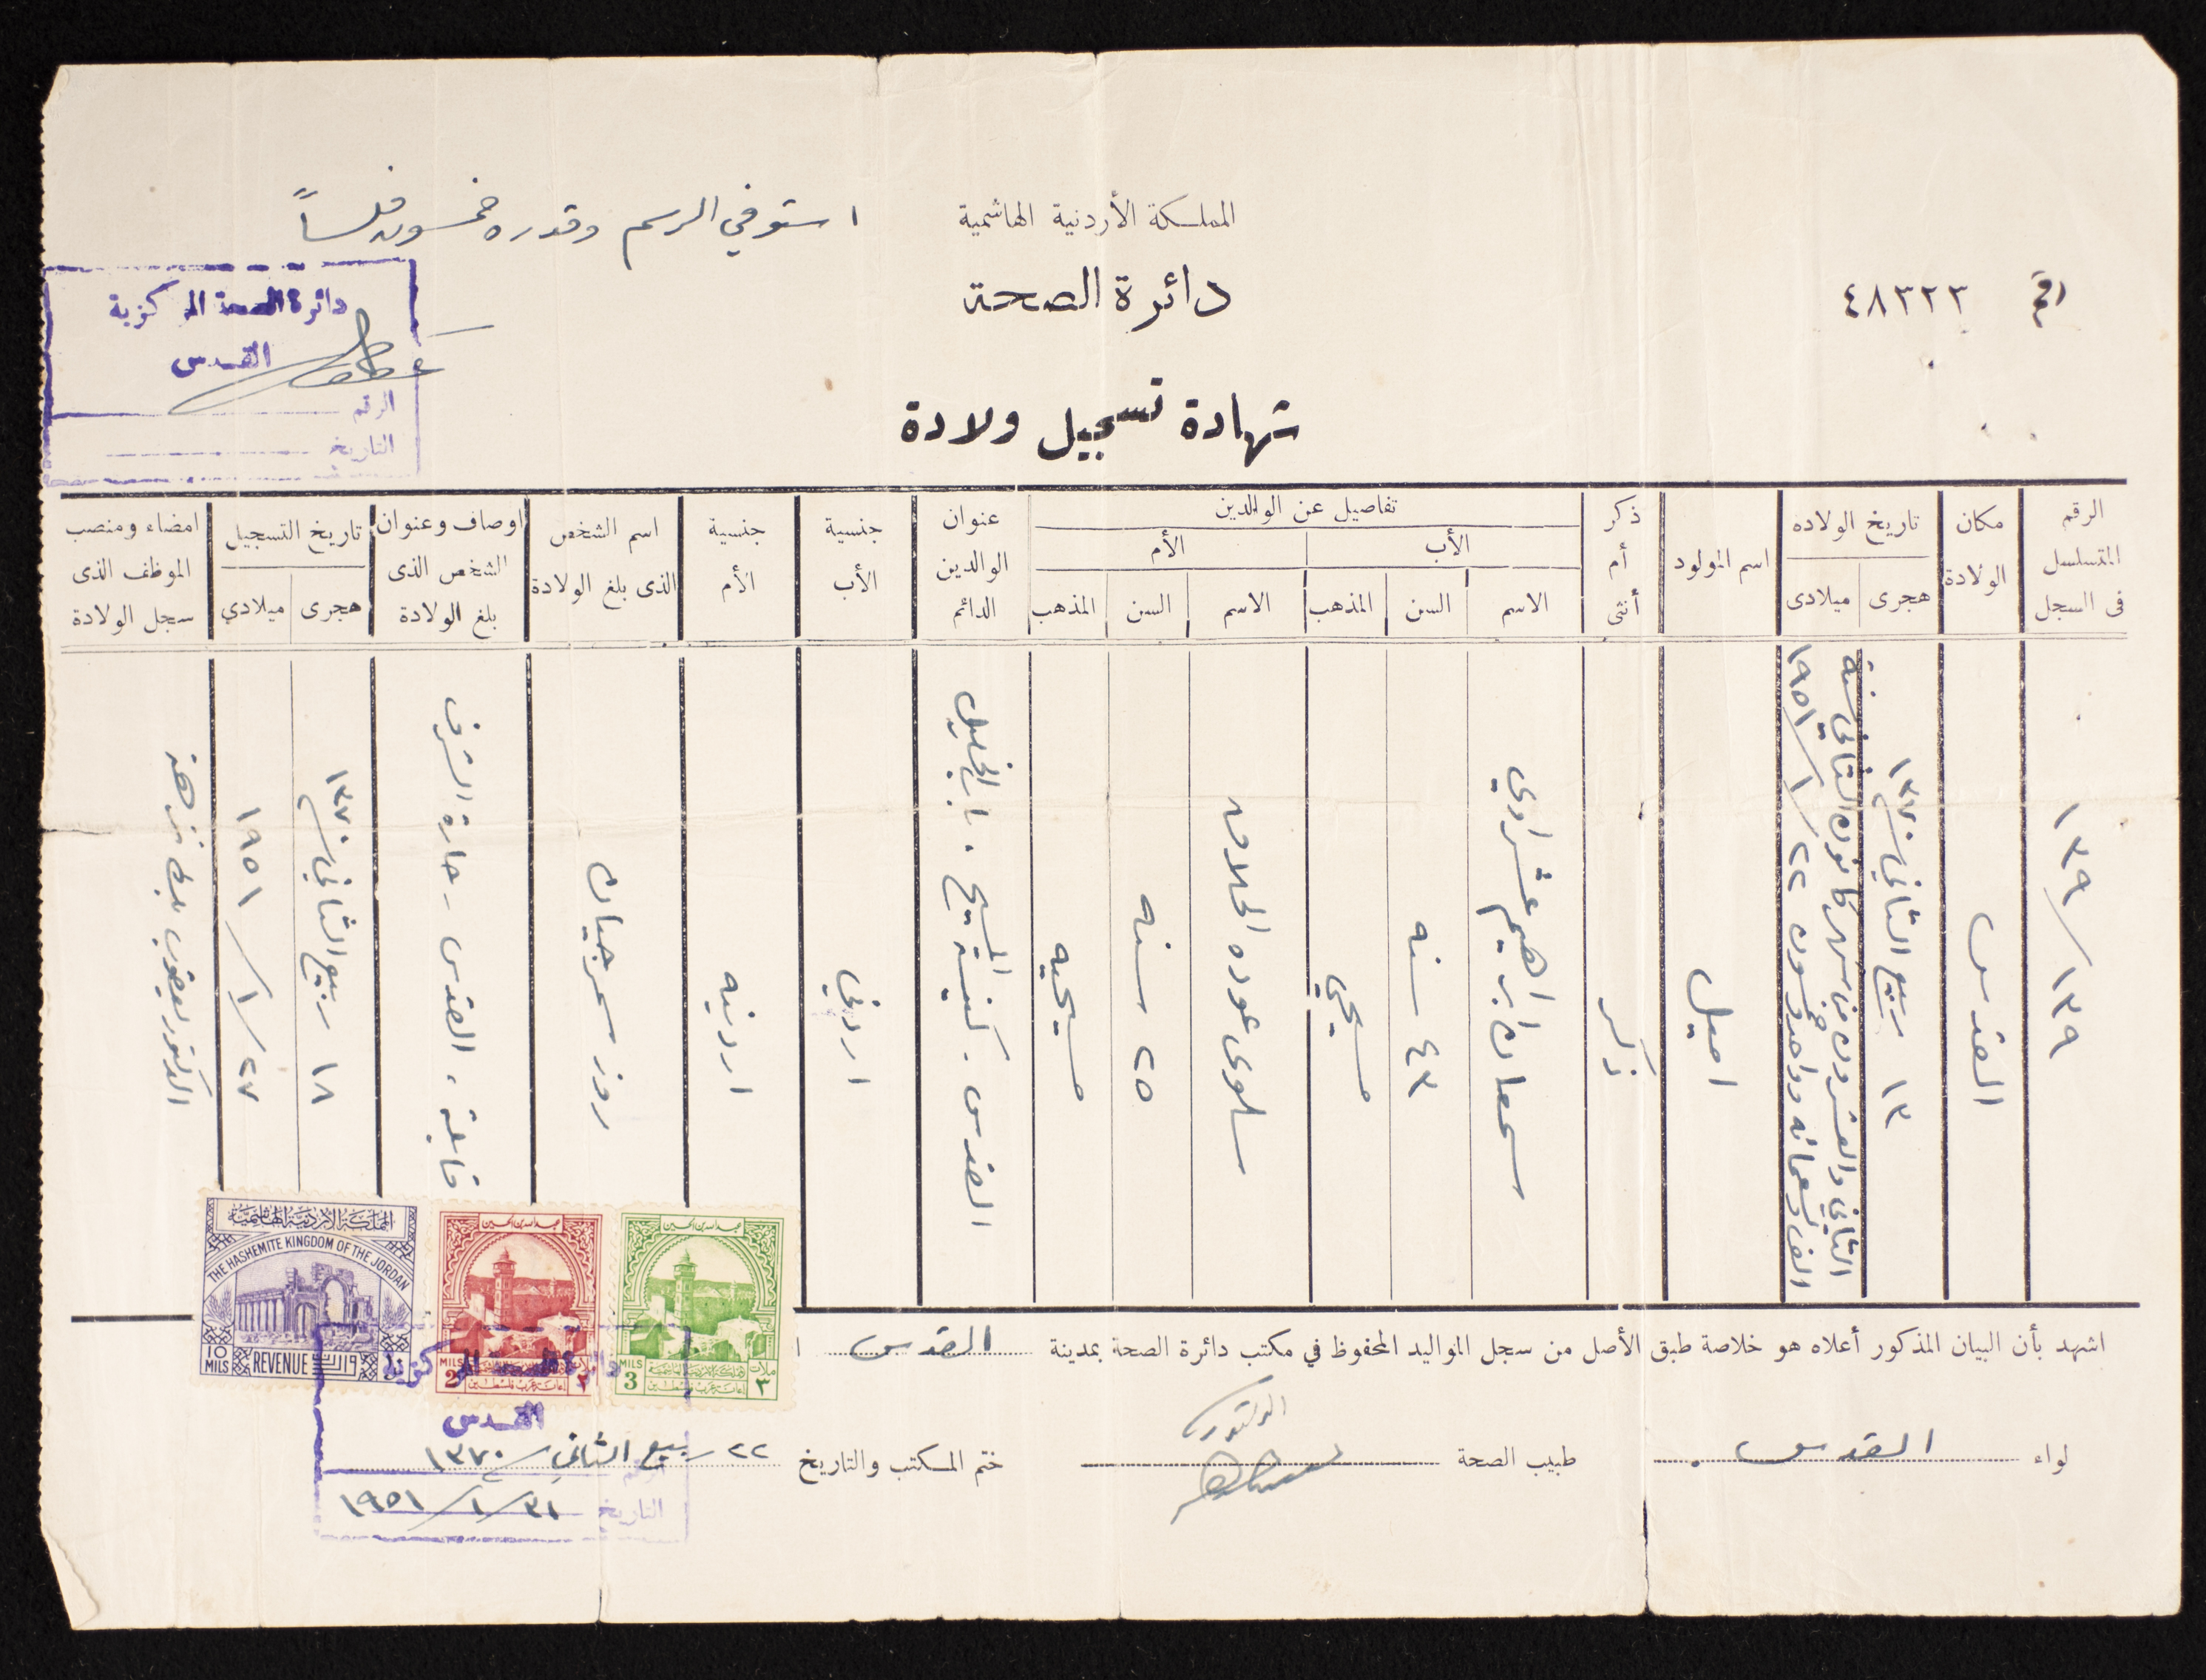 المملكة الأردنية الهاشمية
استوفي الرسم وقدره خمسون فلساً
دائرة الصحة
رقم ٤٨٣٢٣
دائرة الصحة المركزية
القدس
الرقم
التاريخ
شهادة تسجيل ولادة
الرقم المتسلسل فى السجل
مكان الولادة
تاريخ الولاده
هجرى
ميلادى
اسم المولود
ذكر أم أنثى
تفاصيل عن الوالدين
الأب
الأم
الاسم
السن
المذهب
الاسم
السن
المذهب
عنوان الوالدين الدائم
جنسية الأب
جنسية الأم
اسم الشخص الذى بلغ الولادة
اوصاف وعنوان الشخص الذى بلغ الولادة
تاريخ التسجيل
هجرى
ميلادي
امضاء ومنصب الموظف الذى سجل الولادة
١٣٩/١٣٩
القدس
١٣ ربيع الثاني سنة ١٣٧٠
الثاني والعشرون من شهر كانون الثاني سنة
الف وتسعمائه وواحد وخمسون ٢٢/١/١٩٥١
اميل
ذكر
سمعان ابراهيم عشراوي
٤٣ سنه
مسيحي
سلوى عوده
٢٥ سنه
مسيحيه
القدس. كنيسة المسيح. باب الخليل
اردني
اردنيه
روز سحرجيان
قابلة، القدس - حارة الشرف
١٨ ربيع الثاني سنة ١٣٧٠
٢٧/١/١٩٥١
الدكتور يعقوب نزهة
المملكة الأردنية الهاشمية
THE HASHEMITE KINGDOM OF THE JORDAN
10 MILS
REVENUE
عبدالله بن الحسين
MILS 2
٢
المملكة الأردنية الهاشمية
إعانة عرب فلسطين
عبدالله بن الحسين
MILS 3
ملات ٣
المملكة الأردنية الهاشمية
إعانة عرب فلسطين
اشهد بأن البيان المذكور أعلاه هو خلاصة طبق الأصل من سجل المواليد المحفوظ في مكتب دائرة الصحة بمدينة القدس
لواء القدس
طبيب الصحة الدكتور
ختم المكتب والتاريخ ٢٢ ربيع الثاني سنة ١٣٧٠
دائرة الصحة المركزية
القدس
الرقم
التاريخ ٣١/١/١٩٥١